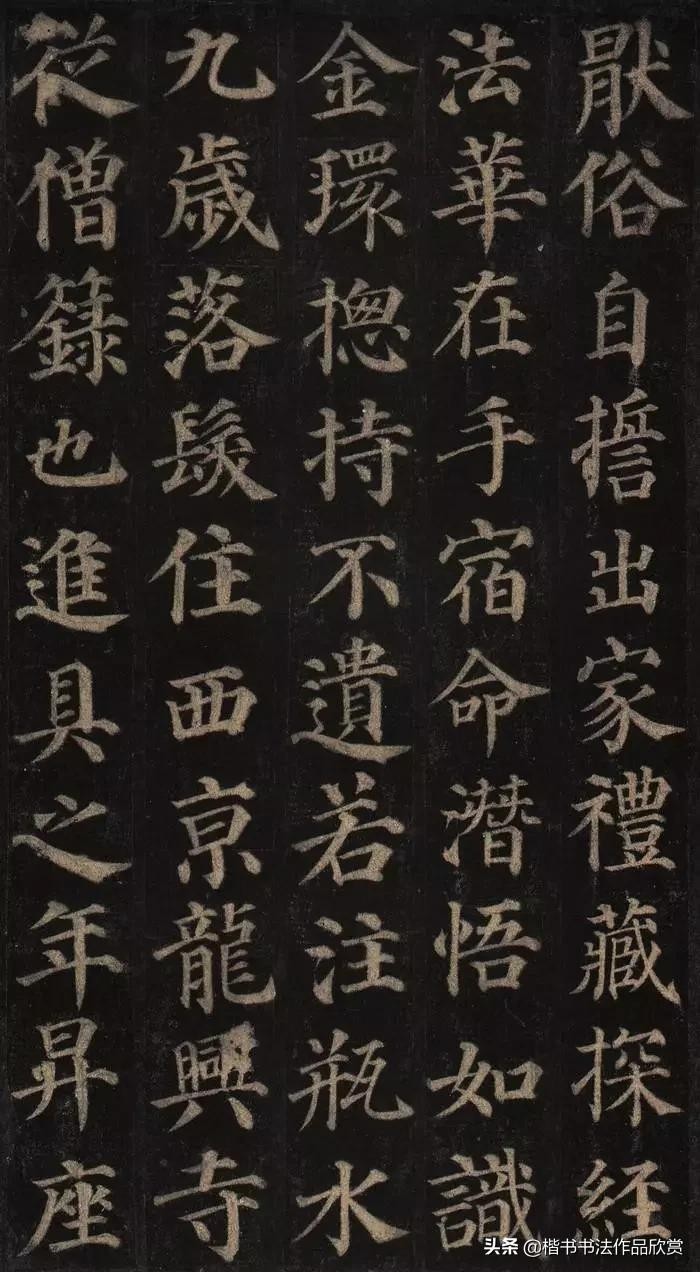 猒俗自誓出家禮藏探経
法華在手宿命潛悟如識
金環揔持不遺若注瓶水
九歲落髮住西京龍興寺
從僧籙也進具之年昇座
头条 @楷书书法作品欣赏